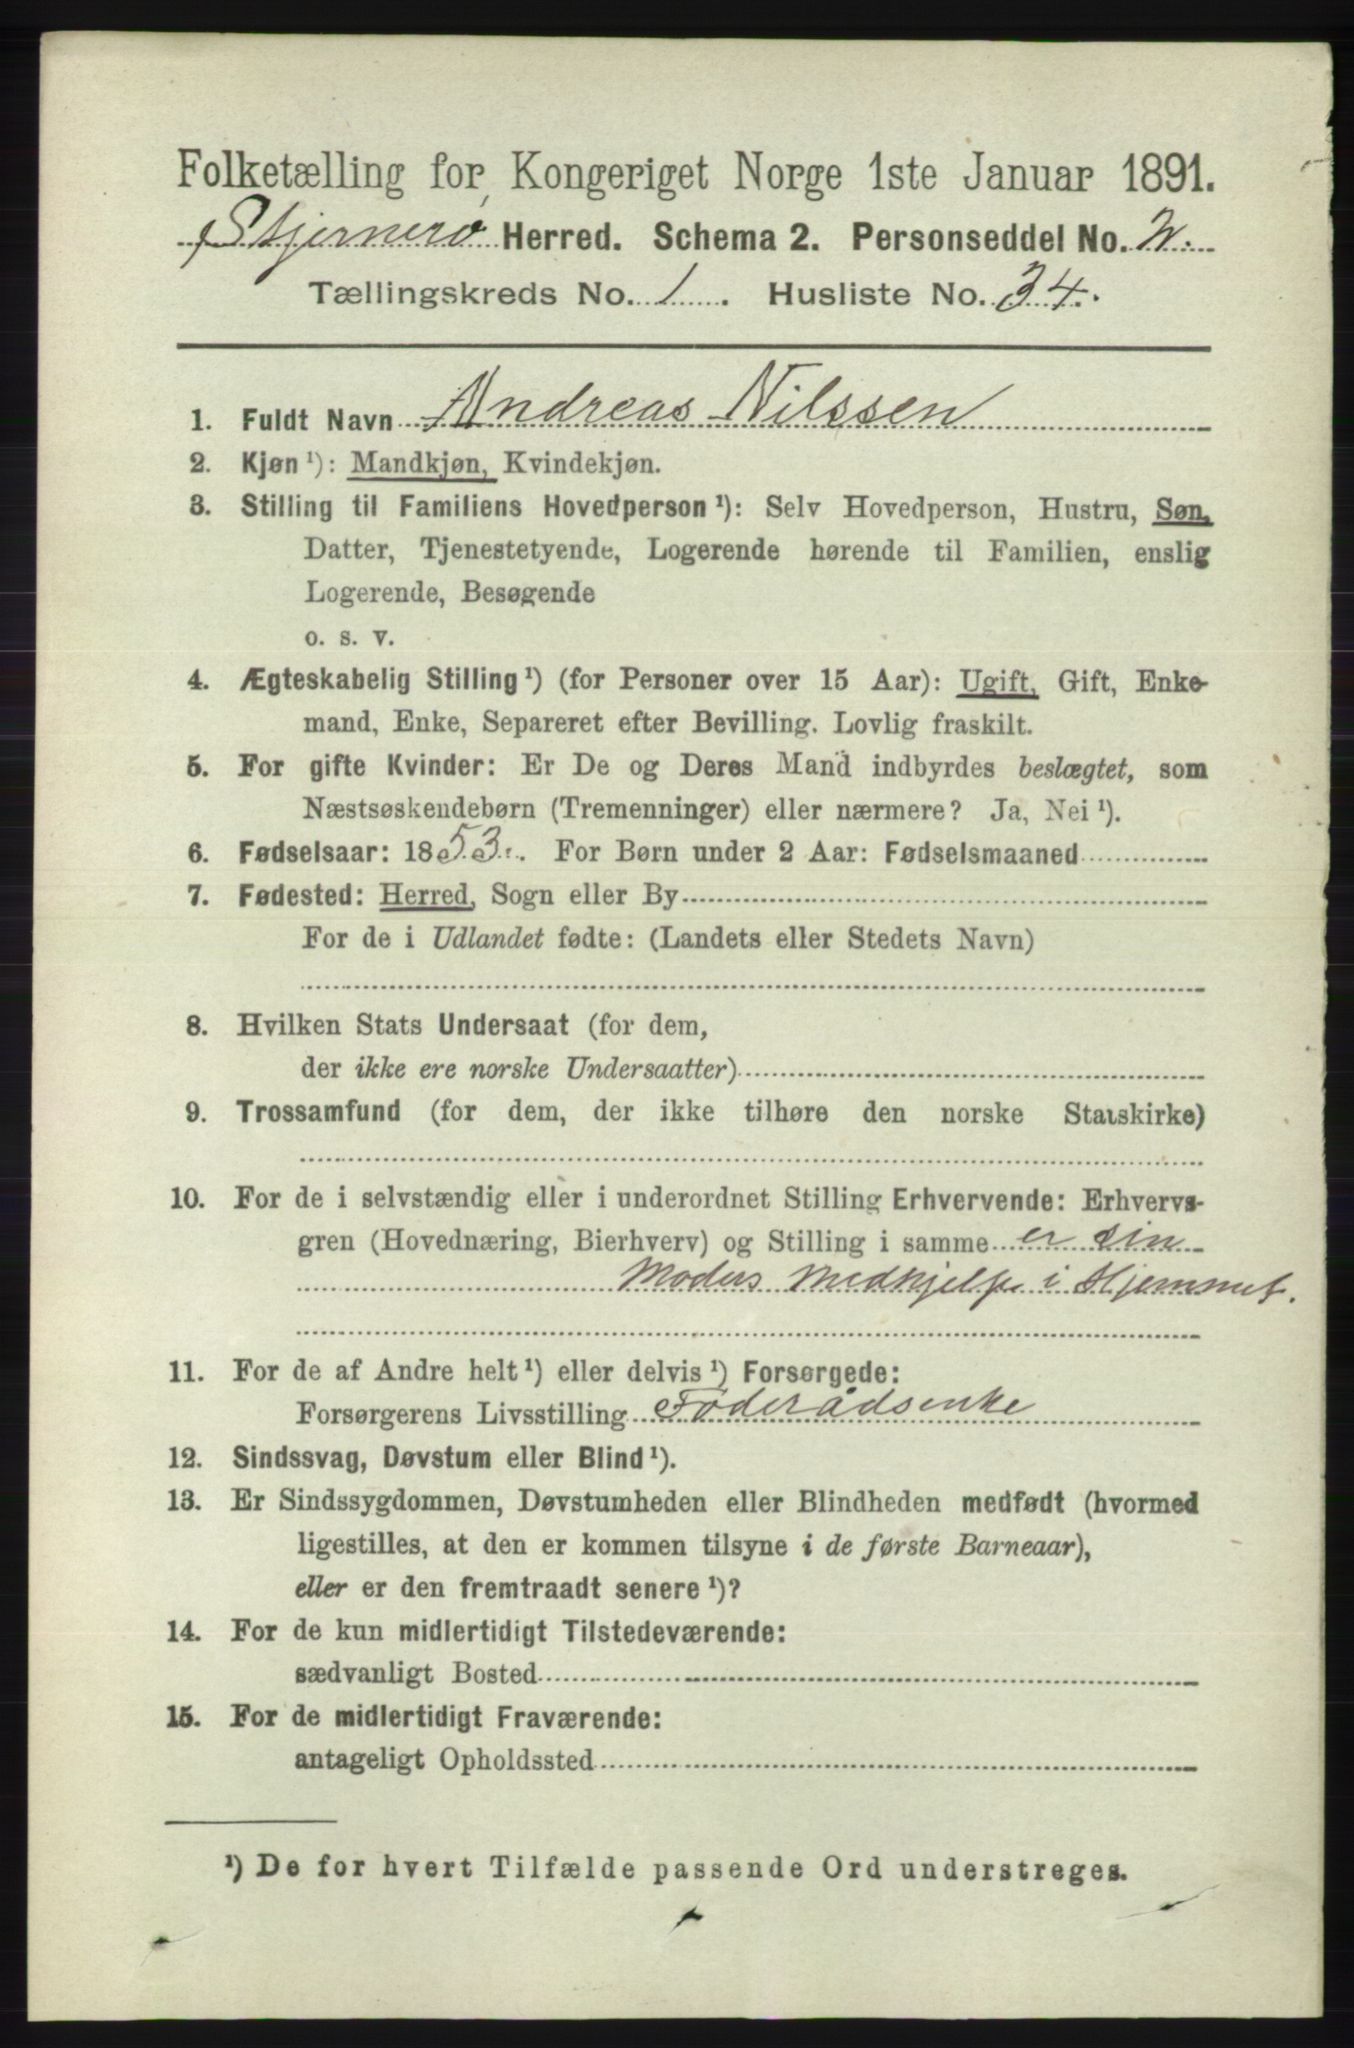 Folketælling for Kongeriget Norge 1ste Januar 1891.
Stjernerø Herred. Schema 2. Personseddel No. 2.
Tællingskreds No. 1. Husliste No. 34.
1. Fuldt Navn Andreas Nilssen
2. Kjøn ¹): Mandkjøn, Kvindekjøn.
3. Stilling til Familiens Hovedperson ¹): Selv Hovedperson, Hustru, Søn,
Datter, Tjenestetyende, Logerende hørende til Familien, enslig
Logerende, Besøgende
o. s. v.
4. Ægteskabelig Stilling ¹) (for Personer over 15 Aar): Ugift, Gift, Enke-
mand, Enke, Separeret efter Bevilling. Lovlig fraskilt.
5. For gifte Kvinder: Er De og Deres Mand indbyrdes beslægtet, som
Næstsøskendebørn (Tremenninger) eller nærmere? Ja, Nei ¹).
6. Fødselsaar: 1853. For Børn under 2 Aar: Fødselsmaaned
7. Fødested: Herred, Sogn eller By
For de i Udlandet fødte: (Landets eller Stedets Navn)
8. Hvilken Stats Undersaat (for dem,
der ikke ere norske Undersaatter)
9. Trossamfund (for dem, der ikke tilhøre den norske Statskirke)
10. For de i selvstændig eller i underordnet Stilling Erhvervende: Erhvervs-
gren (Hovednæring, Bierhverv) og Stilling i samme er sin
Moders Medhjelp i Hjemmet.
11. For de af Andre helt ¹) eller delvis ¹) Forsørgede:
Forsørgerens Livsstilling Føderådsenke
12. Sindssvag, Døvstum eller Blind ¹).
13. Er Sindssygdommen, Døvstumheden eller Blindheden medfødt (hvormed
ligestilles, at den er kommen tilsyne i de første Barneaar),
eller er den fremtraadt senere ¹)?
14. For de kun midlertidigt Tilstedeværende:
sædvanligt Bosted
15. For de midlertidigt Fraværende:
antageligt Opholdssted
¹) De for hvert Tilfælde passende Ord understreges.